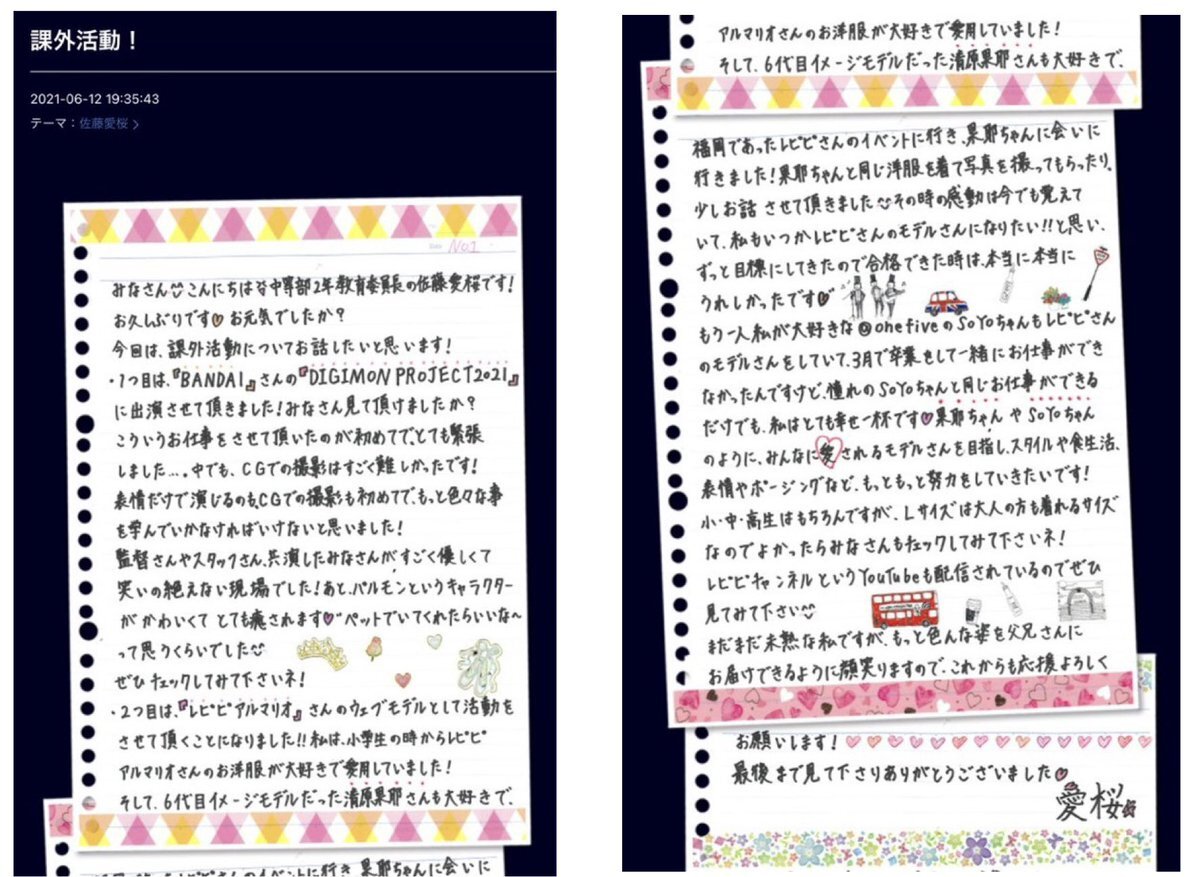 課外活動！
2021-06-12 19:35:43
テーマ：佐藤愛桜
No.1
みなさんこんにちは中等部2年教育委員長の佐藤愛桜です！
お久しぶりです お元気でしたか？
今回は、課外活動についてお話したいと思います！
・1つ目は、『BANDAI』さんの『DIGIMON PROJECT2021』
に出演させて頂きました！みなさん見て頂けましたか？
こういうお仕事をさせて頂いたのが初めてで、とても緊張
しました…。中でも、CGでの撮影はすごく難しかったです！
表情だけで演じるのもCGでの撮影も初めてで、もっと色々な事
を学んでいかなければいけないと思いました！
監督さんやスタッフさん、共演したみなさんがすごく優しくて
笑いの絶えない現場でした！あと、パルモンというキャラクター
がかわいくてとても癒されます ペットでいてくれたらいいな〜
って思うくらいでした
ぜひチェックしてみて下さいネ！
・2つ目は、『レピピアルマリオ』さんのウェブモデルとして活動を
させて頂くことになりました!!私は、小学生の時からレピピ
アルマリオさんのお洋服が大好きで愛用していました！
そして、6代目イメージモデルだった清原果耶さんも大好きで、
福岡であったレピピさんのイベントに行き、果耶ちゃんに会いに
アルマリオさんのお洋服が大好きで愛用していました！
そして、6代目イメージモデルだった清原果耶さんも大好きで、
福岡であったレピピさんのイベントに行き、果耶ちゃんに会いに
行きました！果耶ちゃんと同じ洋服を着て写真を撮ってもらったり、
少しお話させて頂きました その時の感動は今でも覚えて
いて、私もいつかレピピさんのモデルさんになりたい!!と思い、
ずっと目標にしてきたので合格できた時は、本当に本当に
うれしかったです
もう一人私が大好きな@onefiveのSoYoちゃんもレピピさん
のモデルさんをしていて、3月で卒業をして一緒にお仕事ができ
なかったんですけど、憧れのSoYoちゃんと同じお仕事ができる
だけでも、私はとても幸せ一杯です 果耶ちゃんやSoYoちゃん
のように、みんなに愛されるモデルさんを目指し、スタイルや食生活、
表情やポージングなど、もっともっと努力をしていきたいです！
小・中・高生はもちろんですが、Lサイズは大人の方も着れるサイズ
なのでよかったらみなさんもチェックしてみて下さいネ！
レピピチャンネルというYouTubeも配信されているのでぜひ
見てみて下さい
まだまだ未熟な私ですが、もっと色んな姿を父兄さんに
お届けできるように顔笑りますので、これからも応援よろしく
お願いします！
最後まで見て下さりありがとうございました
愛桜